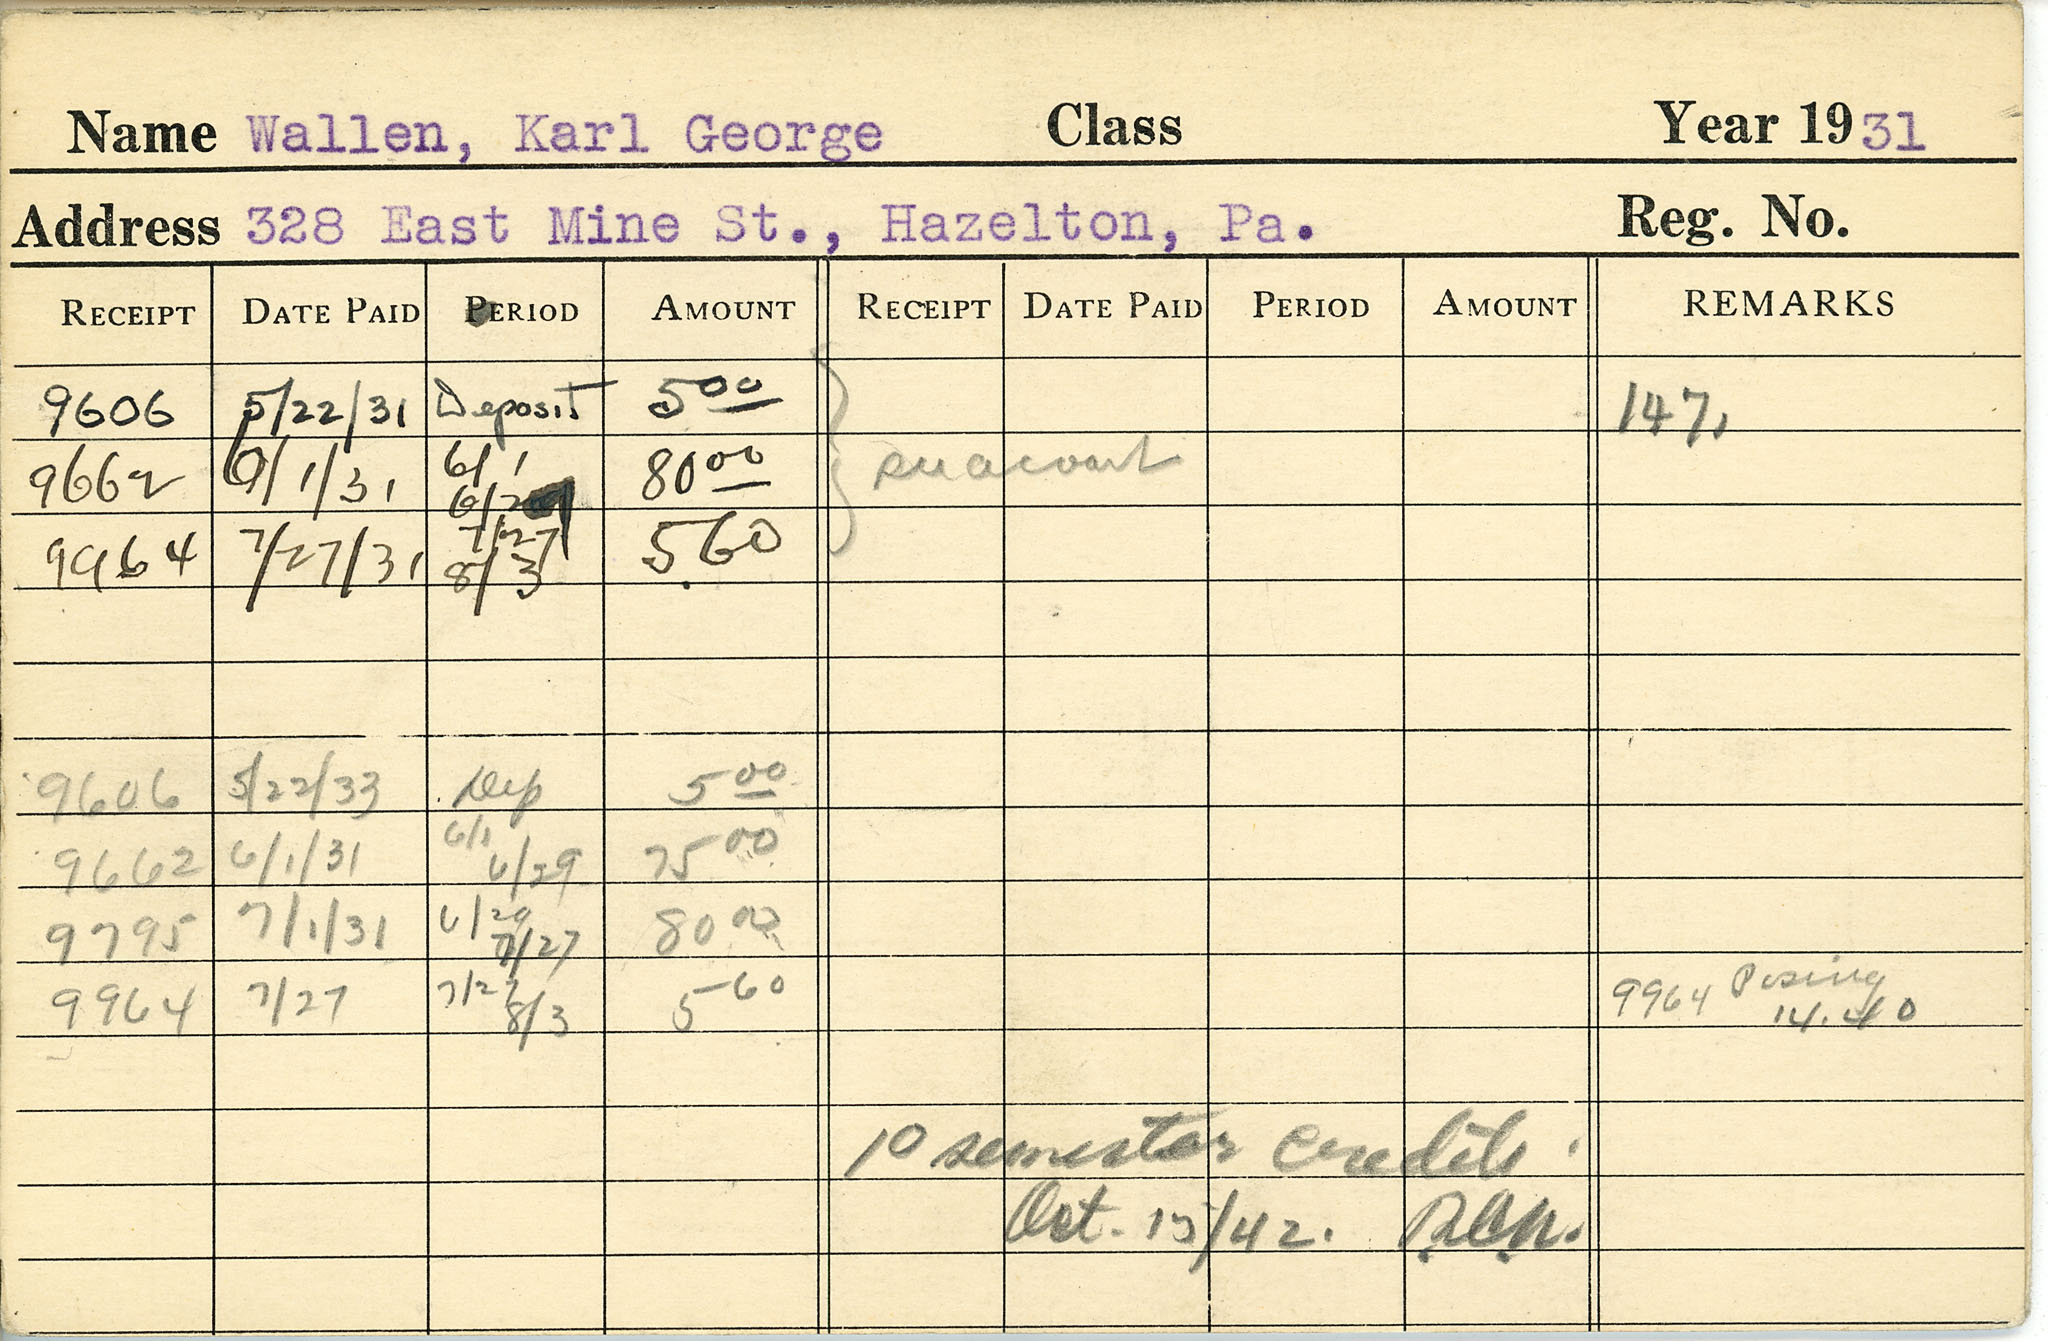 Name Wallen, Karl George Class Year 1931
Address 328 East Mine St., Hazelton, Pa. Reg. No.
RECEIPT DATE PAID PERIOD AMOUNT RECEIPT DATE PAID PERIOD AMOUNT REMARKS
9606 5/22/31 Deposit 5 00 147.
9662 6/1/31 6/1 6/29 80 00
9964 7/27/31 7/27 8/3 5.60
9606 5/22/33 Dep 5 00
9662 6/1/31 6/1 6/29 75 00
9795 7/1/31 6/29 7/27 80 00
9964 7/27 7/27 8/3 5 60 9964 Posing 14.40
10 semester credits.
Oct. 15/42.